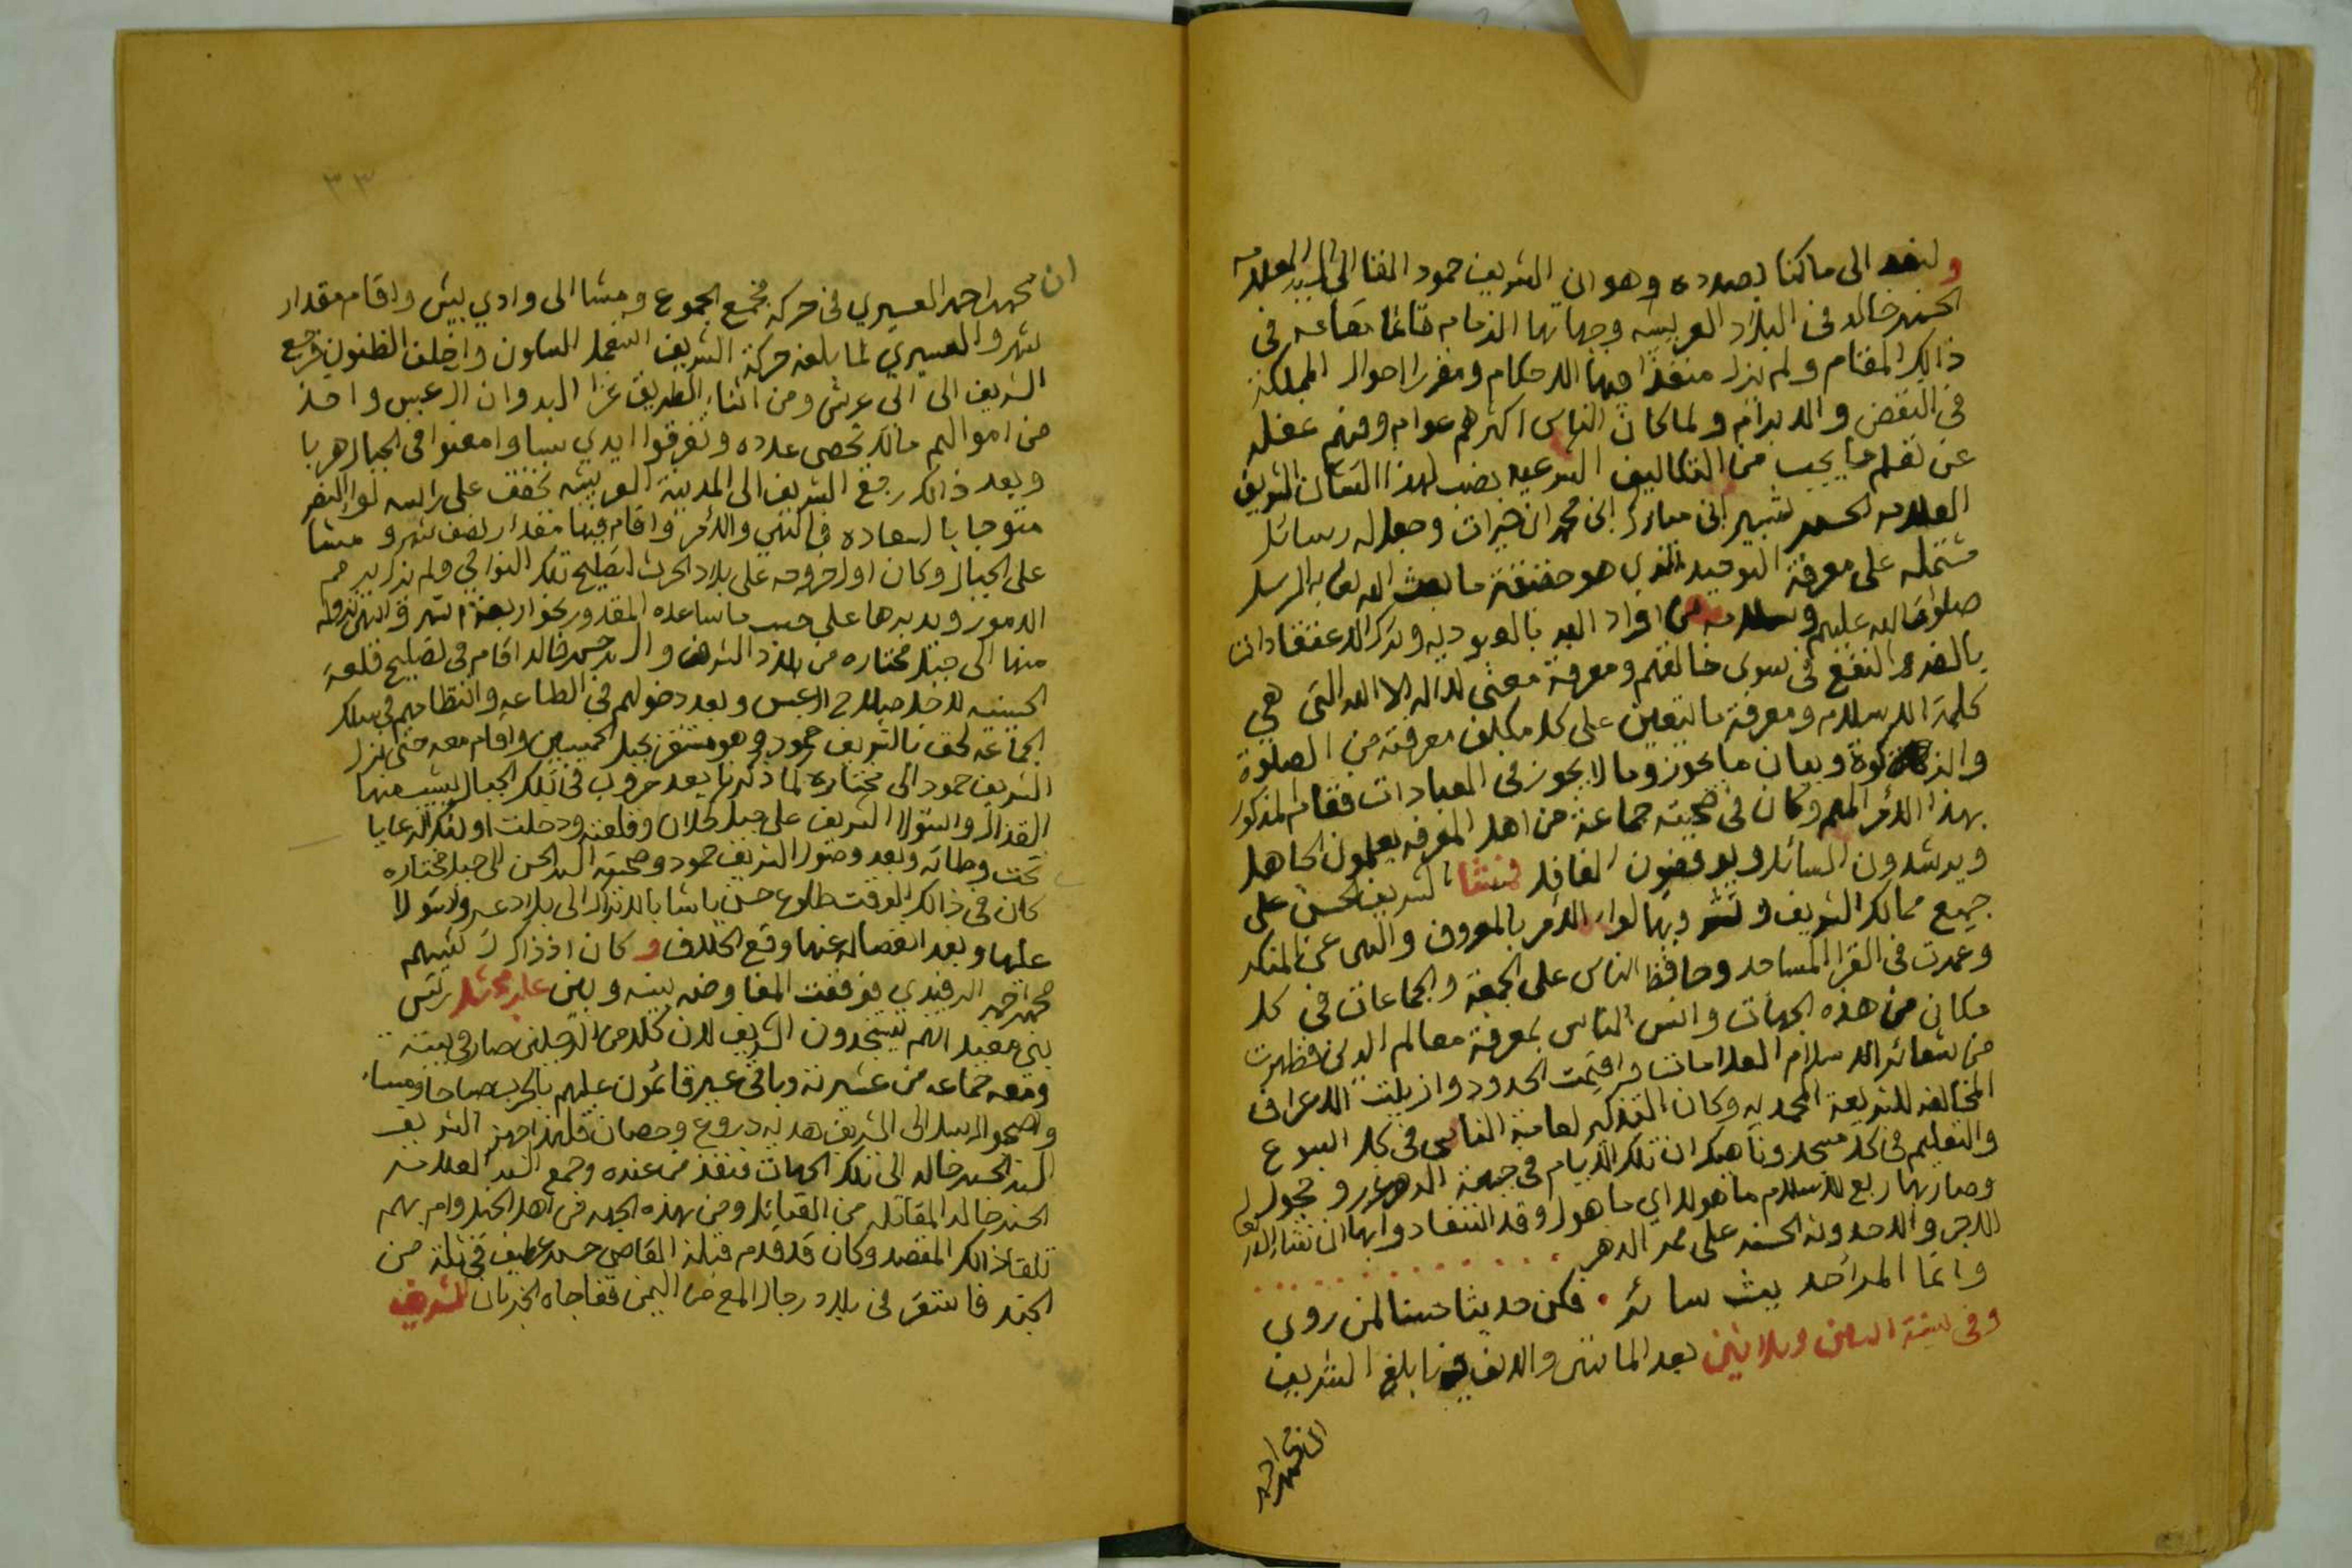 ولنعد الى ما كنا بصدده وهو ان الشريف حمود القا الى السيد العلامه
الحسن خالد فى البلاد العريشيه وجهاتها الزمام قائما مقامه فى
ذالك المقام ولم يزل منفذا فيها الاحكام ومقررا لاحوال المملكة
فى النقض والابرام ولما كان الناس اكثرهم عوام وفيهم غفله
عن تعلم ما يجب من التكاليف الشرعيه نصب لهذا الشان الشريف
العلامه الحسن بشير ابن مبارك ابن محمد ابن خيرات وجعل له رسائل
مشتمله على معرفة التوحيد الذي هو حقيقة ما بعث الله تعالى به الرسل
صلوات الله عليهم وسلامه من افراد الله بالعبوديه وترك الاعتقادات
بالضر والنفع فى سوى خالقهم ومعرفة معنى لا اله الا الله التى هي
كلمة الاسلام ومعرفة ما يتعين على كل مكلف معرفته من الصلوة
والزكوة وبيان ما يجوز وما لا يجوز فى العبادات فقام المذكور
بهذا الأمر المهم وكان فى صحبته جماعة من اهل المعرفه يعلمون الجاهل
ويرشدون السائل ويوقضون الغافل فمشا الشريف الحسن على
جميع ممالك الشريف ونشر فيها لواء الأمر بالمعروف والنهى عن المنكر
وعمرت فى القرا المساجد وحافظ الناس على الجمعة والجماعات فى كل
مكان من هذه الجهات وانس الناس بمعرفة معالم الدين فظهرت
من شعائر الاسلام العلامات واقيمت الحدود وازيلت الاعراف
المخالفه للشريعة المحمديه وكان التذكير لعامة الناس فى كل اسبوع
والتعليم فى كل مسجد وناهيك ان تلك الأيام فى جبهة الدهر غرر وحجول
وصار بها ربع الاسلام ماهول اي ماهول وقد استفادوا بها ان شاء الله تعالى
الاجر والاحدوثه الحسنه على ممر الدهر
وانما المرء حديث سائر . فكن حديثا حسنا لمن روى
وفى سنة اثنين وثلاثين بعد الماتين والالف بلغ الشريف
ان محمد احمد
٣٣
ان محمد احمد العسيري فى حركه مجمع الجموع ومشا الى وادي بيش واقام مقدار
شهر والعسيري لما بلغه حركة الشريف استعمل السكون واخلف الظنون فرجع
الشريف الى ابي عريش ومن اثناء الطريق غزا البدوان الزعبس واخذ
من اموالهم مالا يحصى عدده وتفرقوا ايدي سبا وامعنوا فى الجبال هربا
وبعد ذالك رجع الشريف الى المدينة العريشيه تخفق على راسه لواء النصر
متوجا بالسعاده فى النهي والأمر واقام فيها مقدار نصف شهر ومشا
على الجبال وكان اول خروجه على بلاد الحرث لتصليح تلك النواحي ولم يزل يبرم
الامور ويدبرها على حسب ما ساعده المقدور نحو اربعة اشهر وانتهى نزوله
منها الى جبل مختاره من بلاد الشرف والسيد حسن خالد اقام فى تصليح قلعة
الحسينيه لاجل صلاح الزعبس وبعد دخولهم فى الطاعه وانتظامهم فى سلك
الجماعه لحق بالشريف حمود وهو مستقر بجبل الحميسين واقام معه حتى نزل
الشريف حمود الى مختاره لما ذكرنا بعد حروب فى تلك الجبال يشيب منها
القذال واستولا الشريف على جبل كحلان وقلعته ودخلت اولئك الرعايا
تحت وطاته وبعد وصول الشريف حمود وصحبته السيد الحسن الى جبل مختاره
كان فى ذالك الوقت طلوع حسن باشا بالاتراك الى بلاد عسير واستولا
عليها وبعد انفصاله عنها وقع الخلاف وكان اذ ذاك رئيسهم
محمد احمد الرفيدي فوقعت المفاوضه بينه وبين علي مجثل رئيس
بني مغيد انهم يستنجدون الشريف لان كلا من الرجلين صار فى بيته
ومعه جماعه من عشيرته وباقى عسير قائمون عليهم بالحرب صباحا ومساء
واصحبوا الرسل الى الشريف هديه دروع وحصان فلهذا جهز الشريف
السيد الحسن خالد الى تلك الجهات فنفذ من عنده وجمع السيد العلامه
الحسن خالد المقاتله من القبائل ومن بهذه الجهه من اهل الخيل وام بهم
تلقا ذالك المقصد وكان قد قدم قبله القاضي حسن عطيف فى ثلة من
الجند فاستقر فى بلاد رجال المع من اليمن ففاجاه الخبر بان الشريف